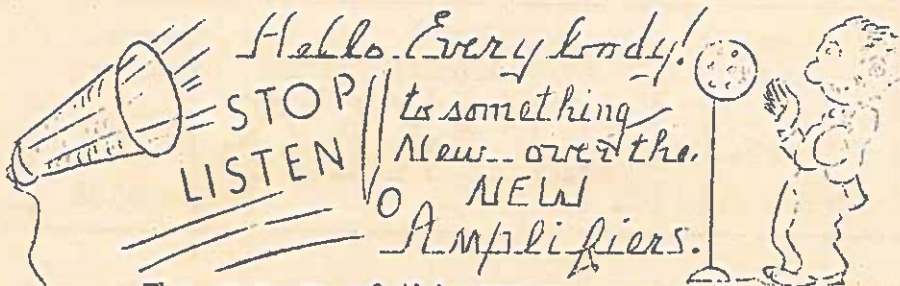 Hello Everybody!
STOP
LISTEN
to something
New over the
NEW
Amplifiers.
The